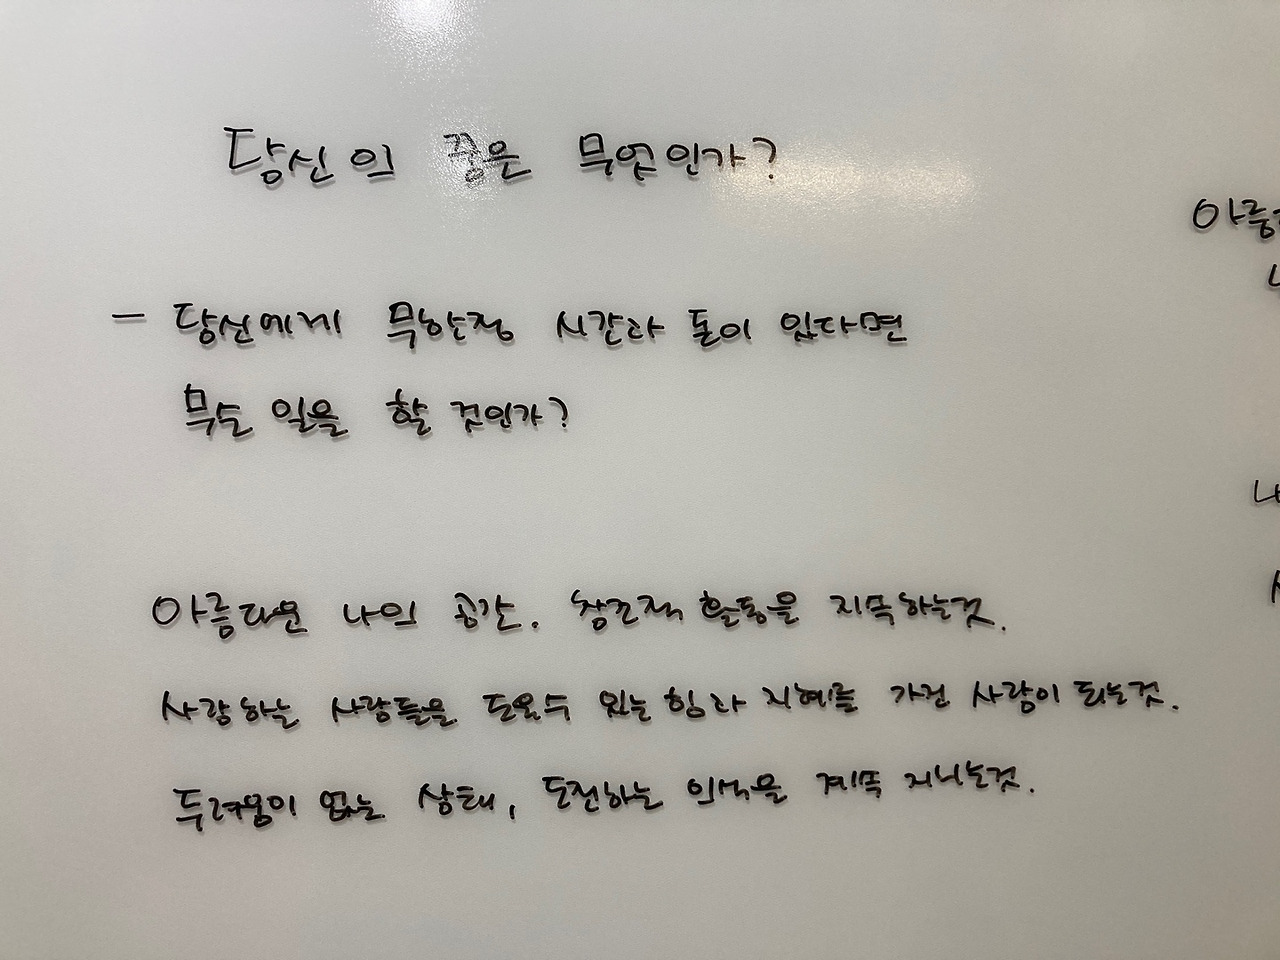 당신의 꿈은 무엇인가?
- 당신에게 무한정 시간과 돈이 있다면
무슨 일을 할 것인가?
아름다운 나의 공간. 창조적 활동을 지속하는것.
사랑하는 사람들을 도울수 있는 힘과 지혜를 가진 사람이 되는것.
두려움이 없는 상태, 도전하는 의식을 계속 지니는것.
아름
나